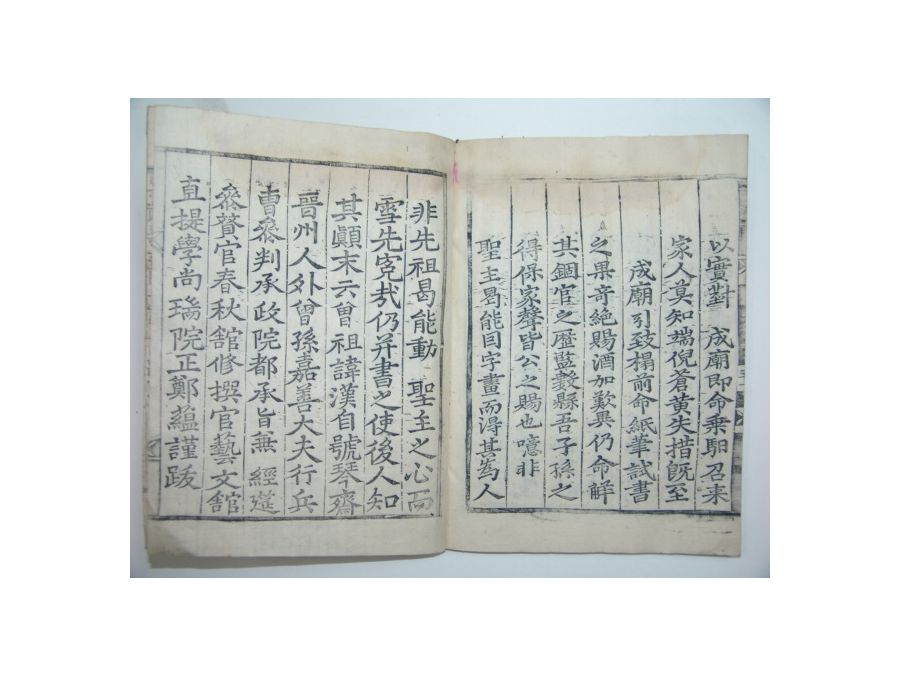 以實對 成廟即命乘馹召来
家人莫知端倪蒼黃失措旣至
成廟引致榻前命紙筆試書
之果奇絶賜酒加歎異仍命解
其錮官之歷監數縣吾子孫之
得保家聲皆公之賜也噫非
聖主曷能因字畫而得其為人
非先祖曷能動 聖主之心而
雪先寃哉仍并書之使後人知
其顚末云曾祖諱漢自號琴齋
晉州人外曾孫嘉善大夫行兵
曹叅判承政院都承旨兼 經筵
叅贊官春秋館修撰官藝文館
直提學尚瑞院正鄭蘊謹跋